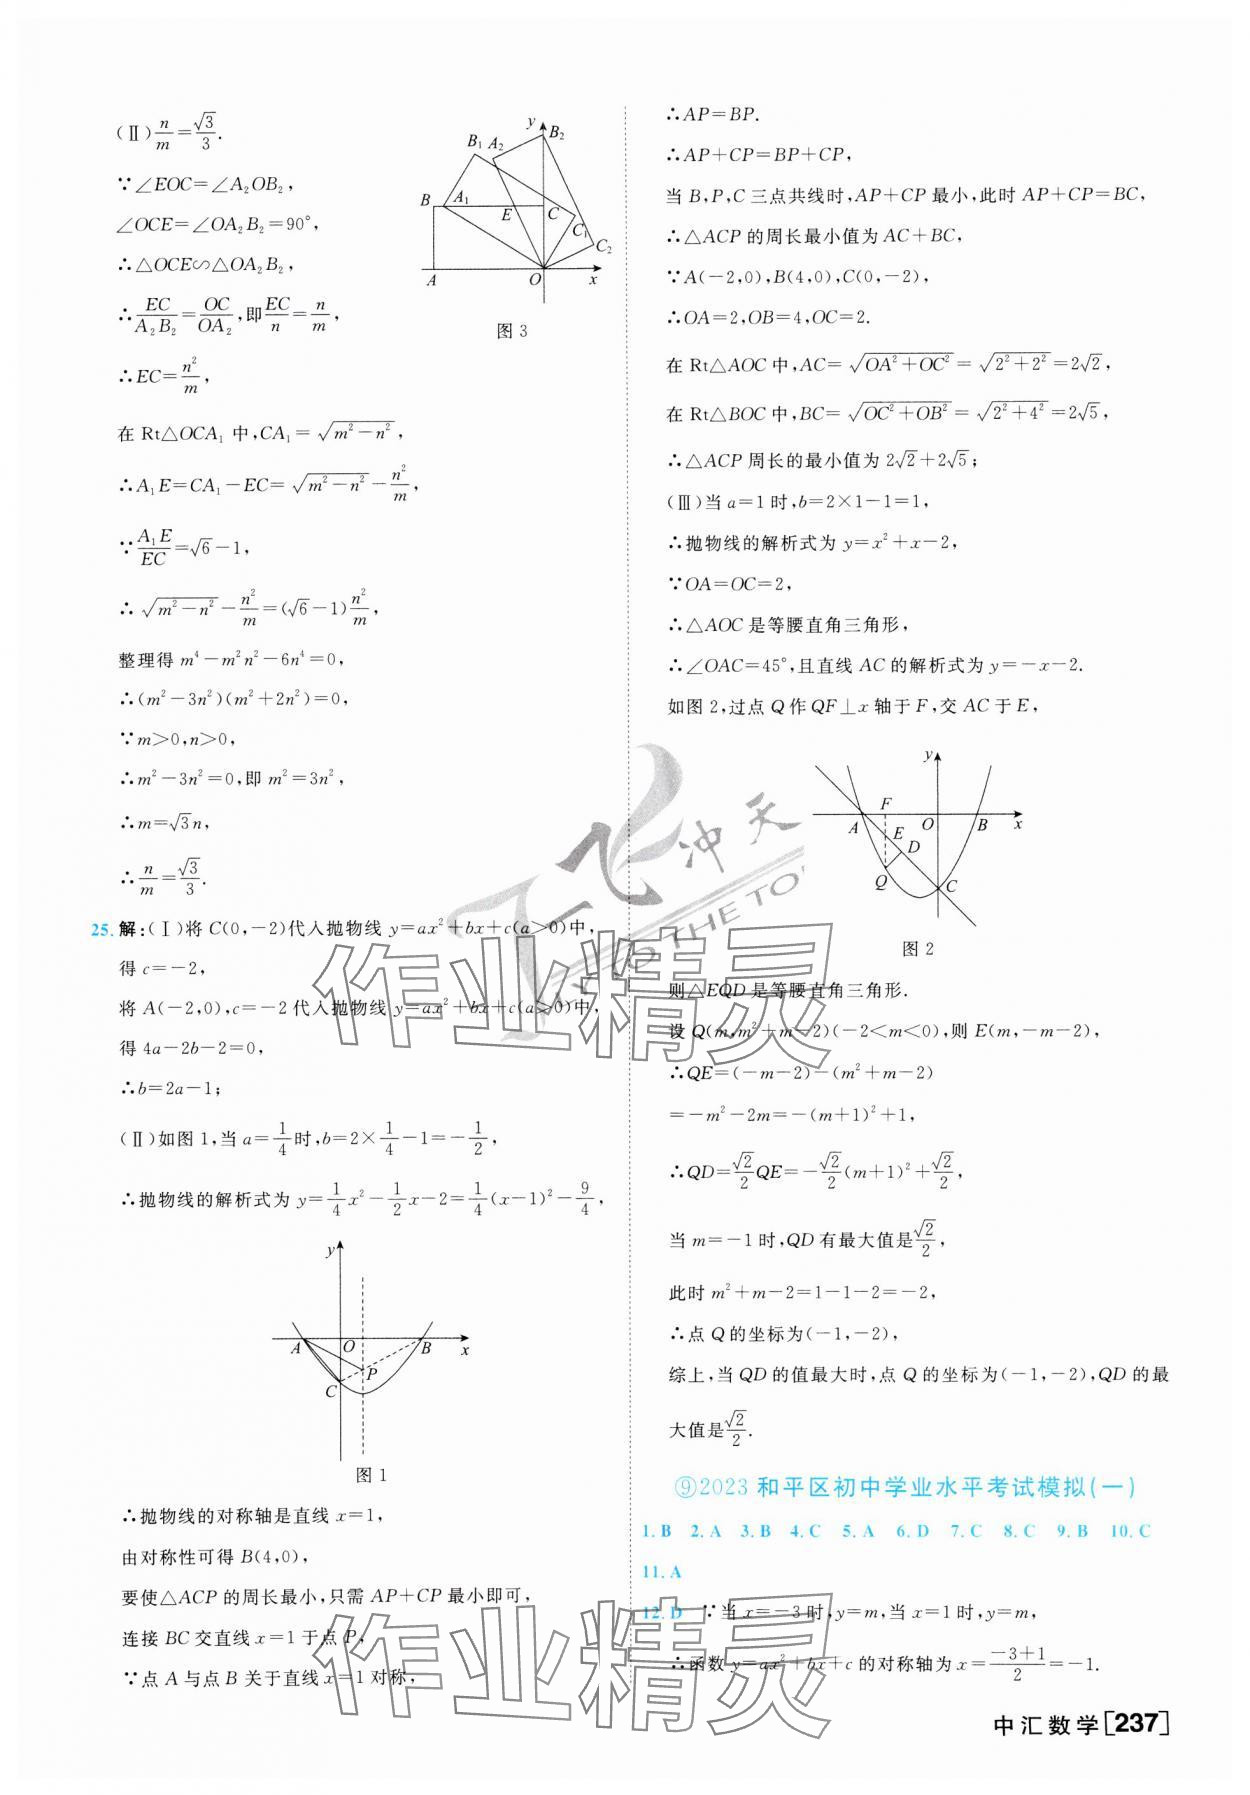 (Ⅱ) n/m=√3/3.
∵∠EOC=∠A₂OB₂,
∠OCE=∠OA₂B₂=90°,
∴△OCE∽△OA₂B₂,
∴EC/A₂B₂=OC/OA₂,即EC/n=n/m,
∴EC=n²/m,
在 Rt△OCA₁ 中,CA₁=√(m²-n²),
∴A₁E=CA₁-EC=√(m²-n²)-n²/m,
∵A₁E/EC=√6-1,
∴√(m²-n²)-n²/m=(√6-1)n²/m,
整理得 m⁴-m²n²-6n⁴=0,
∴(m²-3n²)(m²+2n²)=0,
∵m>0,n>0,
∴m²-3n²=0,即 m²=3n²,
∴m=√3n,
∴n/m=√3/3.
y B₂ B₁ A₂ B A₁ E C C₁ C₂ A O x
图 3
25. 解:(Ⅰ)将 C(0,-2)代入抛物线 y=ax²+bx+c(a>0)中,
得 c=-2,
将 A(-2,0),c=-2 代入抛物线 y=ax²+bx+c(a>0)中,
得 4a-2b-2=0,
∴b=2a-1;
(Ⅱ)如图 1,当 a=1/4时,b=2×1/4-1=-1/2,
∴抛物线的解析式为 y=1/4x²-1/2x-2=1/4(x-1)²-9/4,
y A O B x P C
图 1
∴抛物线的对称轴是直线 x=1,
由对称性可得 B(4,0),
要使△ACP 的周长最小,只需 AP+CP 最小即可,
连接 BC 交直线 x=1 于点 P,
∵点 A 与点 B 关于直线 x=1 对称,
∴AP=BP.
∴AP+CP=BP+CP,
当 B,P,C 三点共线时,AP+CP 最小,此时 AP+CP=BC,
∴△ACP 的周长最小值为 AC+BC,
∵A(-2,0),B(4,0),C(0,-2),
∴OA=2,OB=4,OC=2.
在 Rt△AOC 中,AC=√(OA²+OC²)=√(2²+2²)=2√2,
在 Rt△BOC 中,BC=√(OC²+OB²)=√(2²+4²)=2√5,
∴△ACP 周长的最小值为 2√2+2√5;
(Ⅲ)当 a=1 时,b=2×1-1=1,
∴抛物线的解析式为 y=x²+x-2,
∵OA=OC=2,
∴△AOC 是等腰直角三角形,
∴∠OAC=45°,且直线 AC 的解析式为 y=-x-2.
如图 2,过点 Q 作 QF⊥x 轴于 F,交 AC 于 E,
y F A O B x E D Q C
图 2
则△EQD 是等腰直角三角形.
设 Q(m,m²+m-2)(-2<m<0),则 E(m,-m-2),
∴QE=(-m-2)-(m²+m-2)
=-m²-2m=-(m+1)²+1,
∴QD=√2/2QE=-√2/2(m+1)²+√2/2,
当 m=-1 时,QD 有最大值是√2/2,
此时 m²+m-2=1-1-2=-2,
∴点 Q 的坐标为(-1,-2),
综上,当 QD 的值最大时,点 Q 的坐标为(-1,-2),QD 的最
大值是√2/2.
⑨2023 和平区初中学业水平考试模拟(一)
1. B 2. A 3. B 4. C 5. A 6. D 7. C 8. C 9. B 10. C
11. A
12. D ∵当 x=-3 时,y=m,当 x=1 时,y=m,
∴函数 y=ax²+bx+c 的对称轴为 x=(-3+1)/2=-1.
中汇数学[237]
作业精灵
作业精灵
一飞冲天